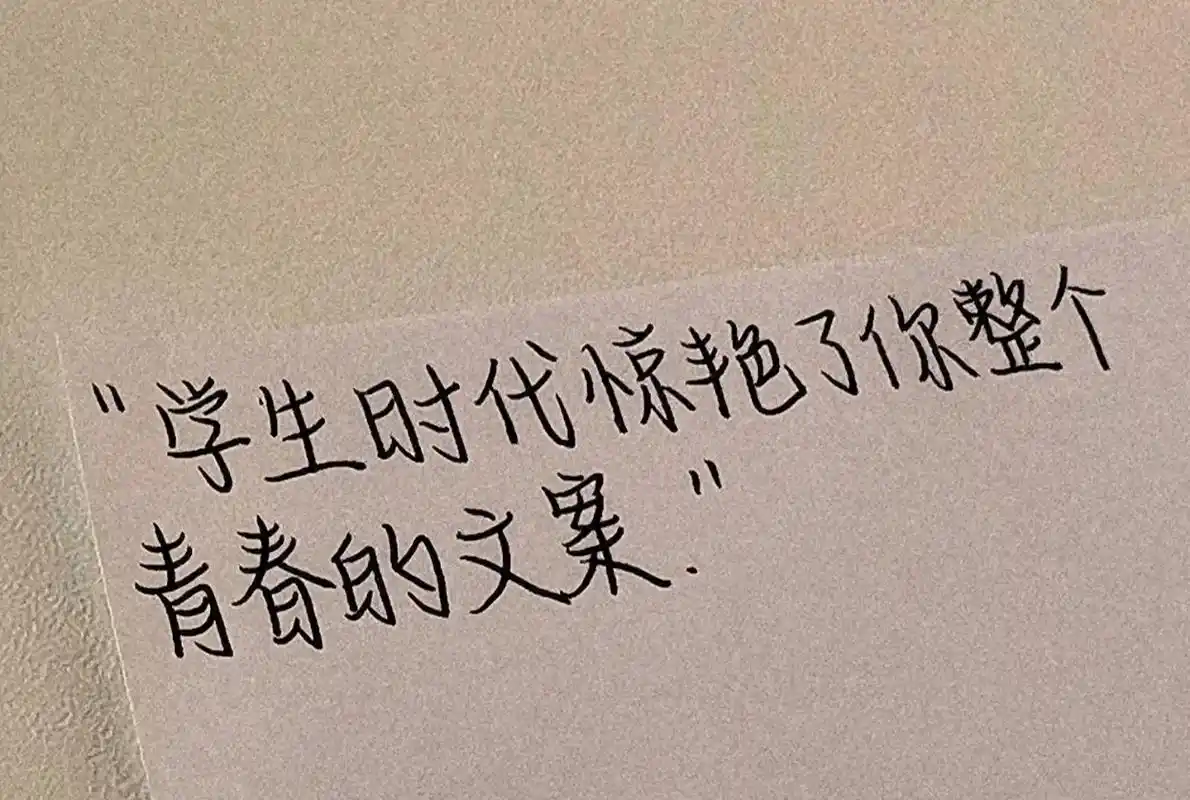 "学生时代惊艳了你整个
青春的文案."